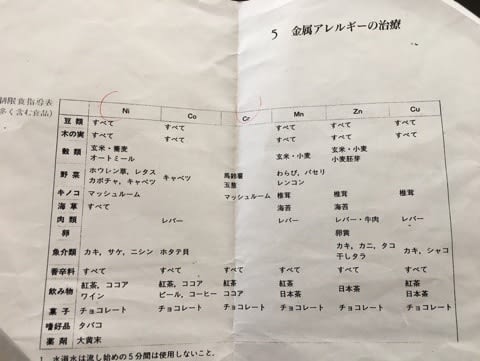 5 金属アレルギーの治療
制限食指導表
多く含む食品)
Ni Co Cr Mn Zn Cu
豆類 すべて すべて すべて すべて すべて
木の実 すべて すべて すべて すべて すべて
穀類 玄米・蕎麦 玄米・小麦 玄米・小麦
オートミール 小麦胚芽
野菜 ホウレン草, レタス キャベツ 馬鈴薯 わらび, パセリ
カボチャ, キャベツ 玉葱 レンコン
キノコ マッシュルーム マッシュルーム 椎茸 椎茸 椎茸
海草 すべて 海苔 海苔
肉類 レバー レバー レバー・牛肉 レバー
卵 卵黄
魚介類 カキ, サケ, ニシン ホタテ貝 カキ, カニ, タコ カキ, シャコ
干しタラ
香辛料 すべて すべて すべて すべて すべて すべて
飲み物 紅茶, ココア 紅茶, ココア 紅茶 紅茶 ココア
ワイン ビール, コーヒー ココア 日本茶 日本茶 日本茶
菓子 チョコレート チョコレート チョコレート チョコレート チョコレート チョコレート
嗜好品 タバコ
薬剤 大黄末
1. 水道水は流し始めの5分間は使用しないこと。